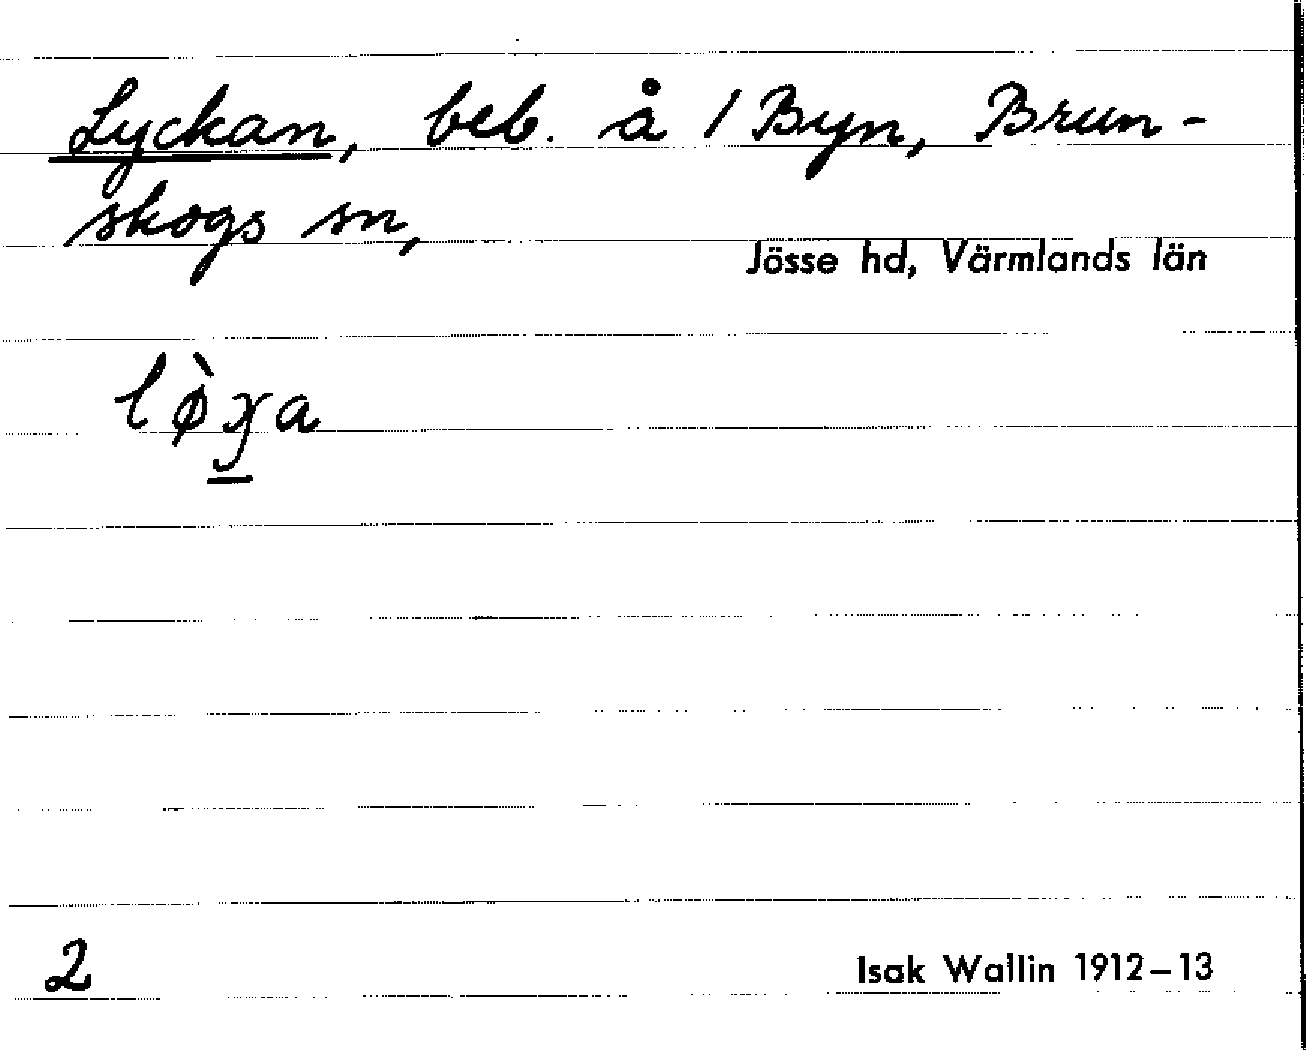 Lyckan, beb. å / Byn, Brun-
skogs sn,
Jösse hd, Värmlands län
2
Isak Wallin 1912–13